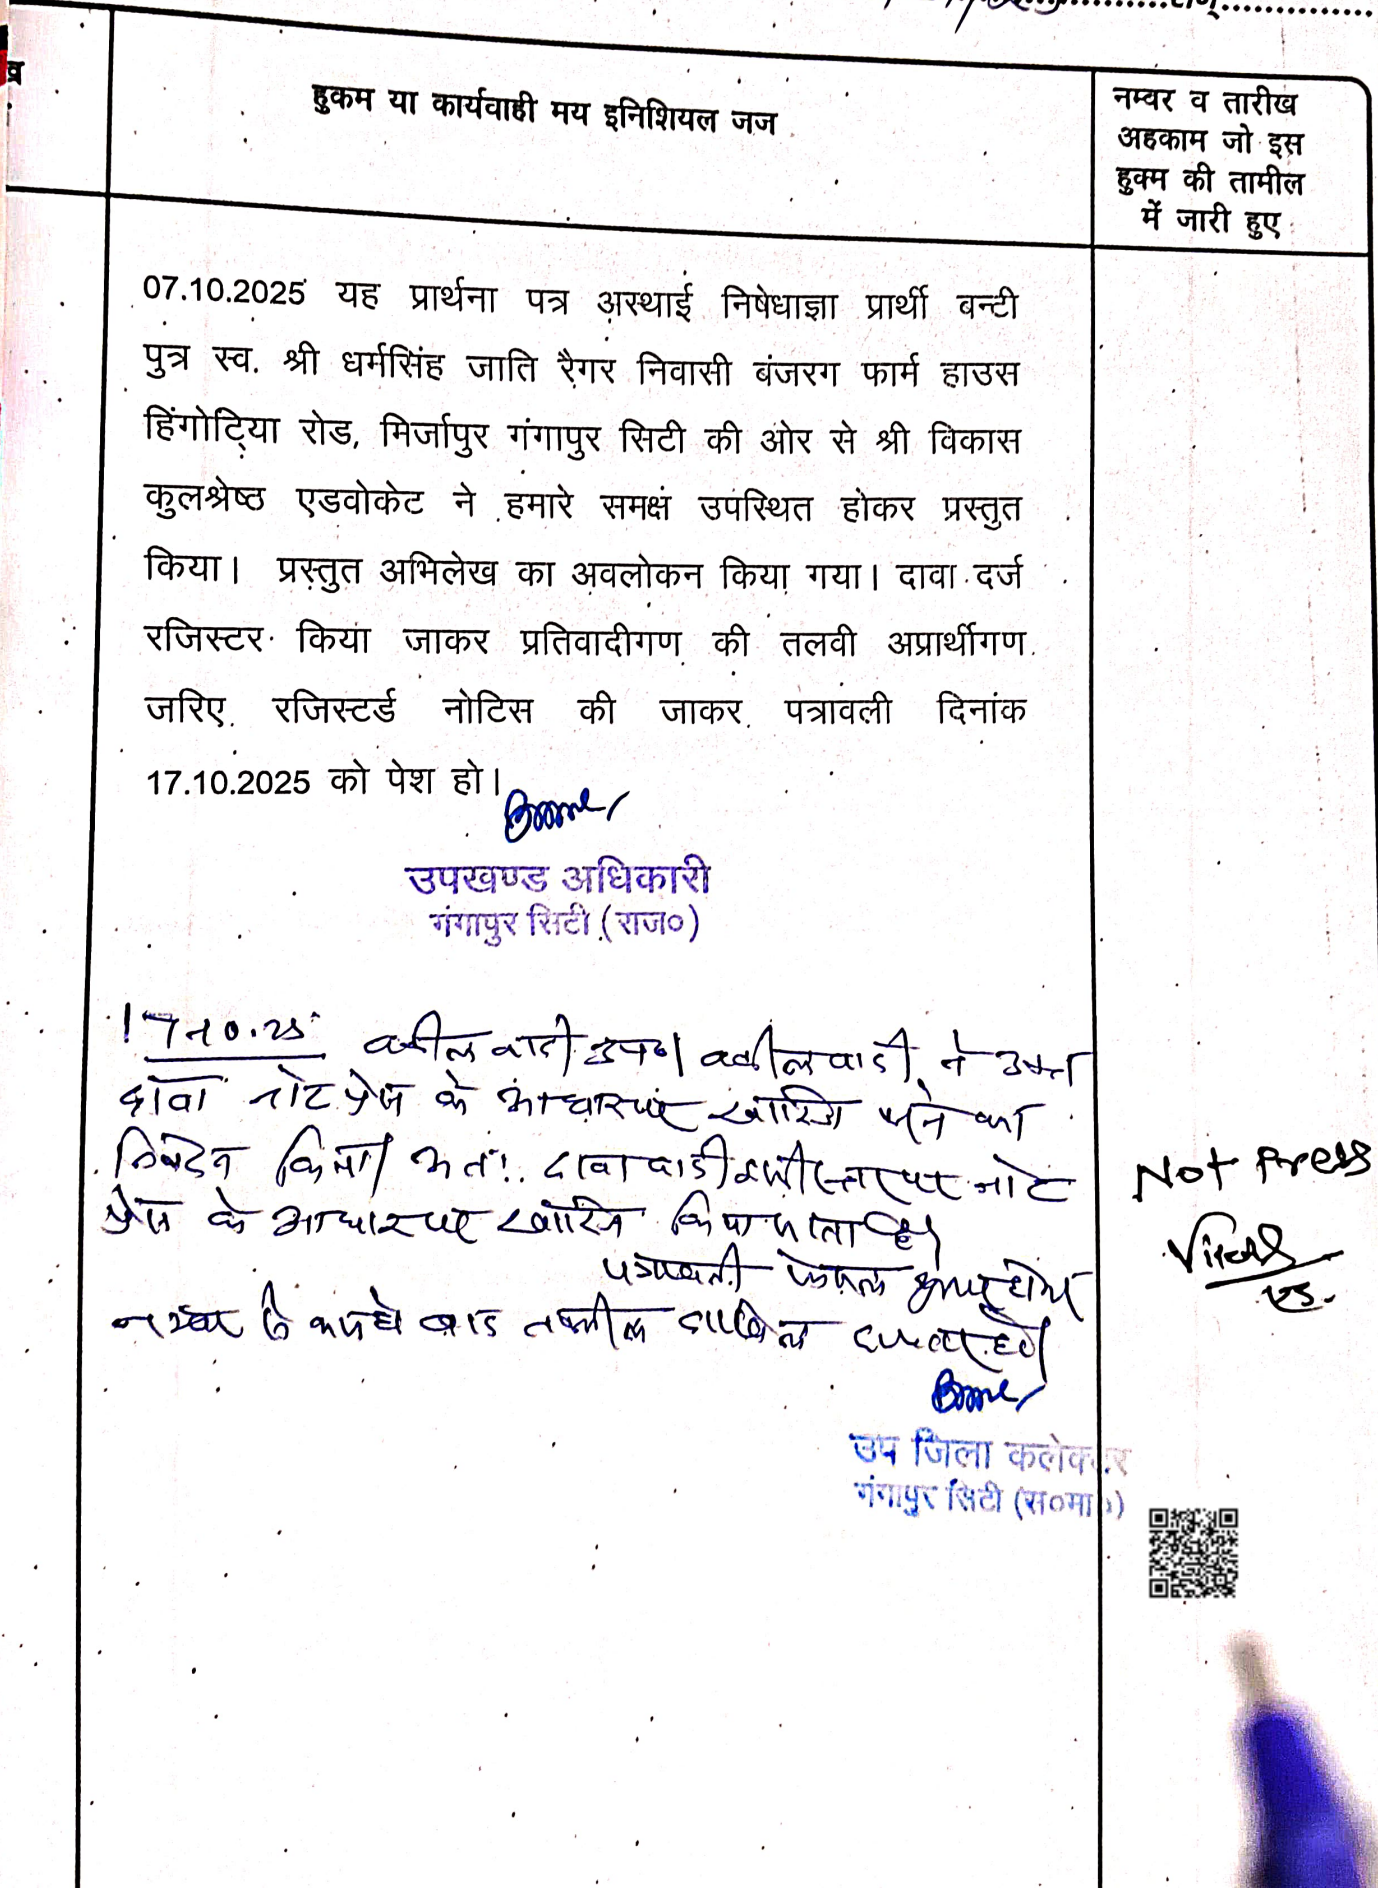 हुकम या कार्यवाही मय इनिशियल जज
नम्बर व तारीख
अहकाम जो इस
हुक्म की तामील
में जारी हुए
07.10.2025 यह प्रार्थना पत्र अस्थाई निषेधाज्ञा प्रार्थी बन्टी
पुत्र स्व. श्री धर्मसिंह जाति रैगर निवासी बंजरग फार्म हाउस
हिंगोट्िया रोड, मिर्जापुर गंगापुर सिटी की ओर से श्री विकास
कुलश्रेष्ठ एडवोकेट ने हमारे समक्ष उपस्थित होकर प्रस्तुत
किया। प्रस्तुत अभिलेख का अवलोकन किया गया। दावा दर्ज
रजिस्टर किया जाकर प्रतिवादीगण की तलवी अप्रार्थीगण
जरिए रजिस्टर्ड नोटिस की जाकर पत्रावली दिनांक
17.10.2025 को पेश हो।
उपखण्ड अधिकारी
गंगापुर सिटी (राज०)
17.10.25 वकील वादी उप०। वकील वादी ने उक्त
दावा नोट प्रेस के आधार पर खारिज करने का
निवेदन किया। अतः दावा वादी इसी स्तर पर नोट
प्रेस के आधार पर खारिज किया जाता है।
पत्रावली फैसल शुमार होकर
बाद तकमील दाखिल दफ्तर हो।
Not Press
उप जिला कलेक्टर
गंगापुर सिटी (स०मा०)